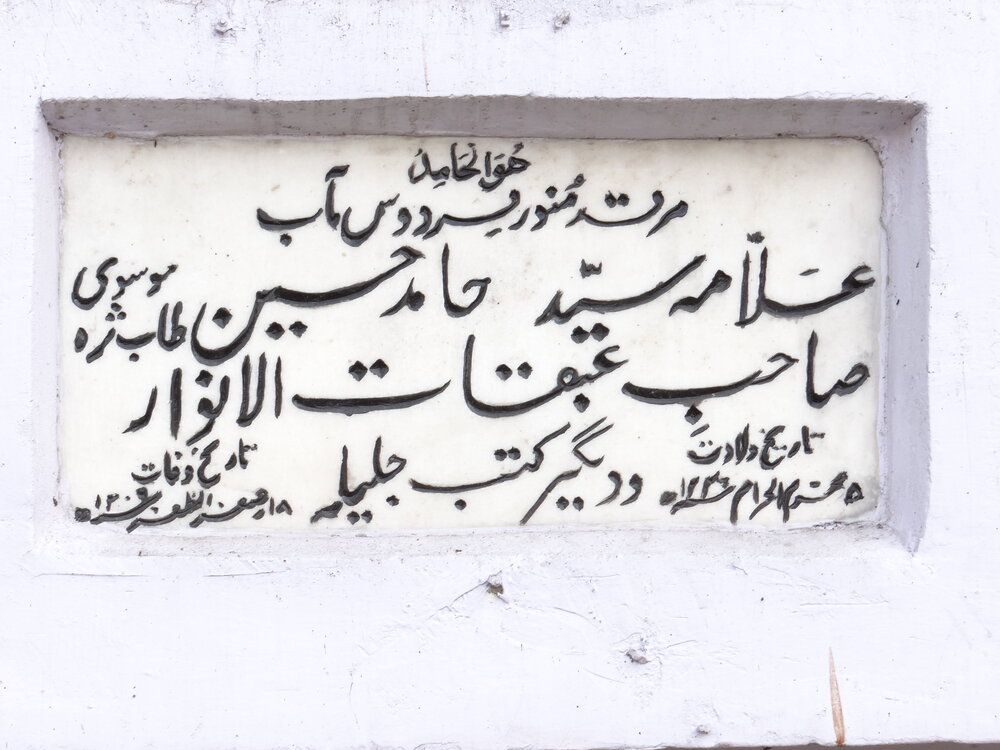 هُوَ الحَامِدُ
مرقد مُنور فردوس مآب
علّامہ سیّد حامد حسین موسوی طاب ثرہ
صاحبِ عبقات الانوار
ودیگر کتب جلیلہ
تاریخ ولادت
۵ محرم الحرام
تاریخ وفات
۱۸ صفر المظفر